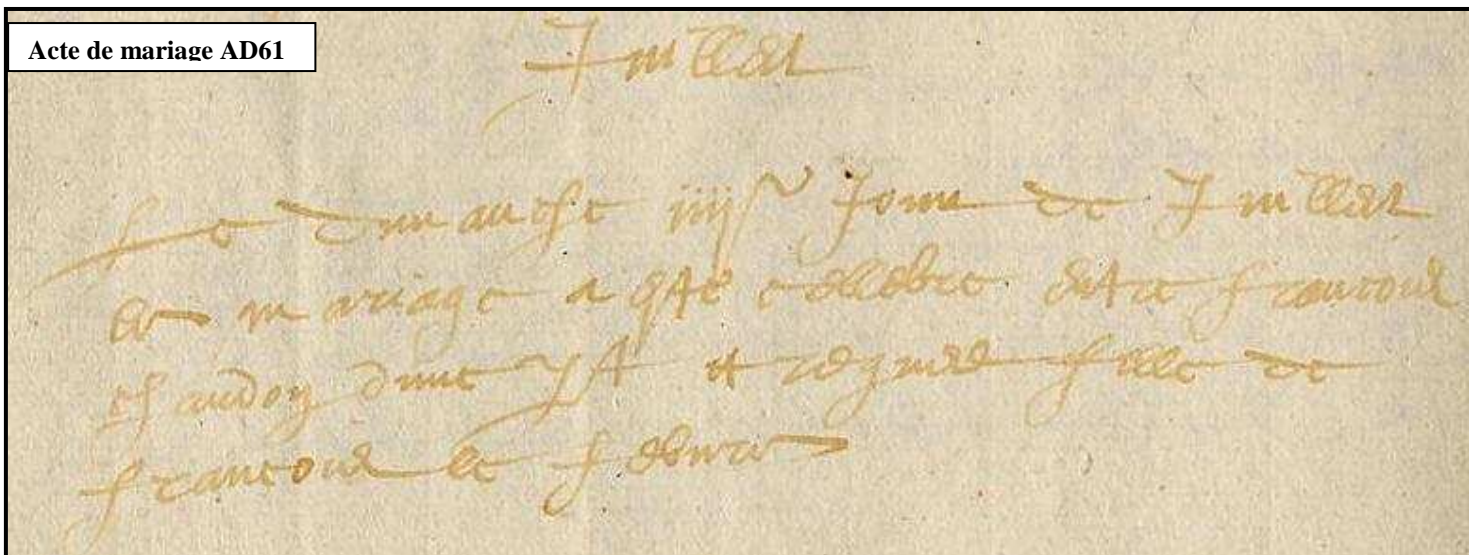 Acte de mariage AD61
Juillet
Le dimanche iiij jour de Juillet
le mariage a este cellebre entre francois
chaudoy dune pt et fille de
francois le febvre